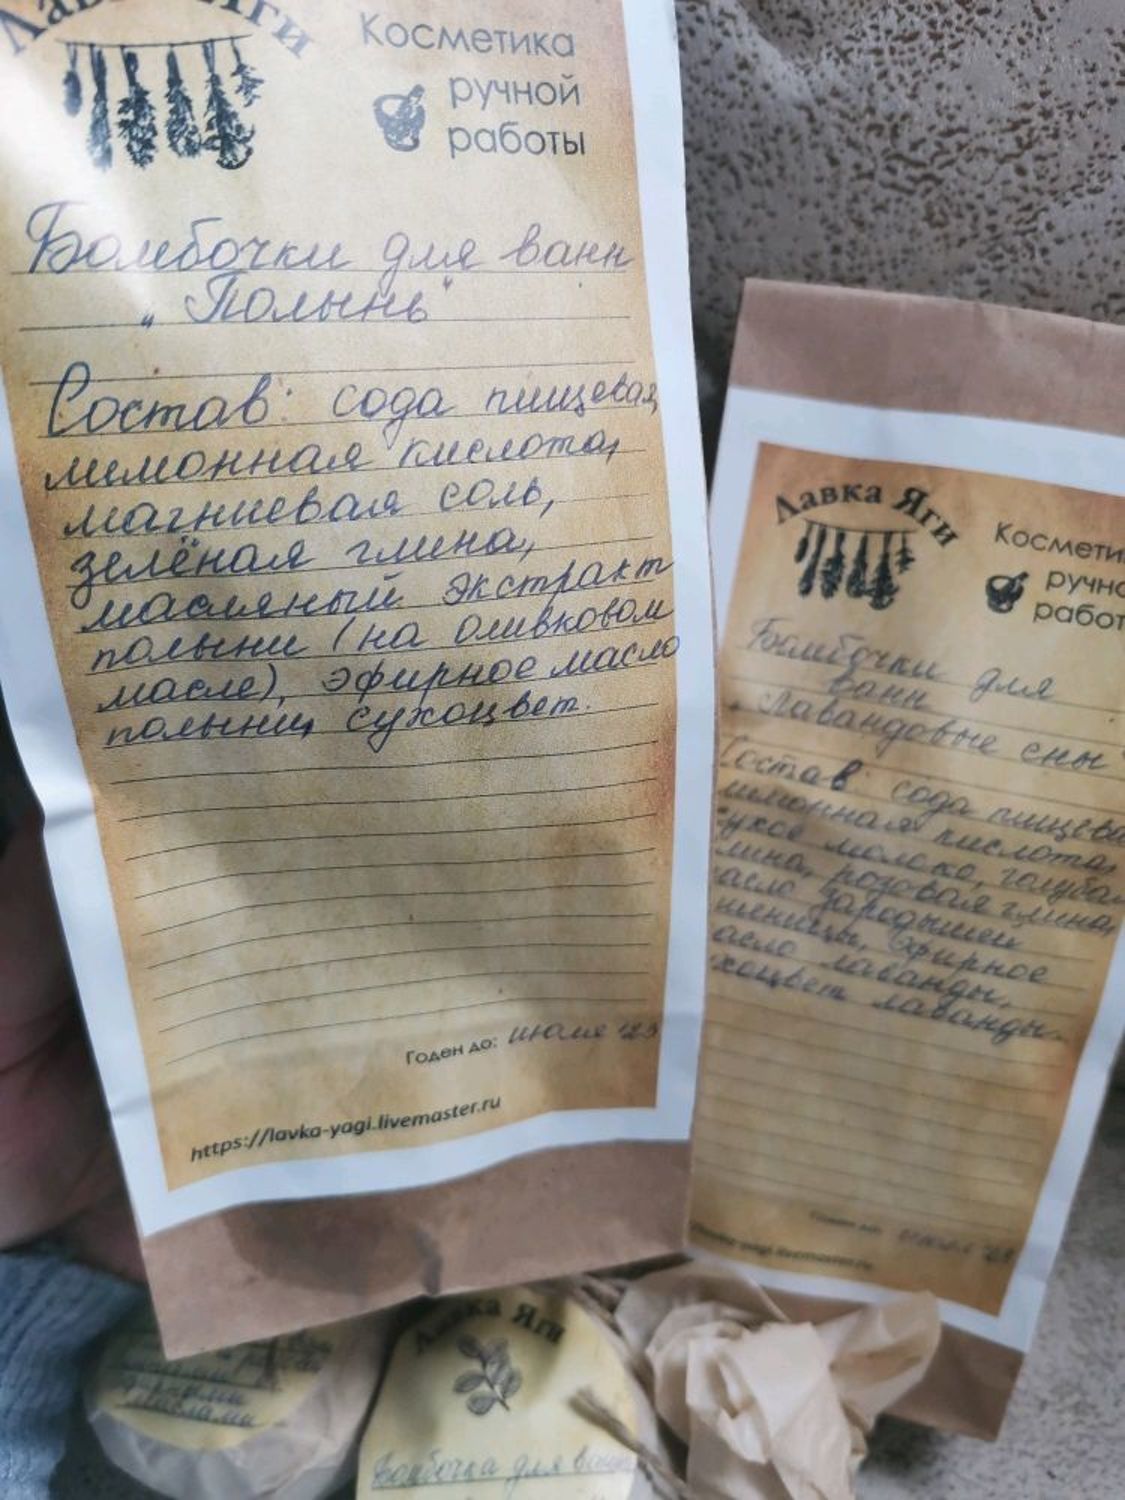 Лавка Яги
Косметика
ручной
работы
Бомбочки для ванн
„Полынь"
Состав: сода пищевая,
лимонная кислота,
магниевая соль,
зелёная глина,
масляный экстракт
полыни (на оливковом
масле), эфирное масло
полыни, сухоцвет.
Годен до: июля '23
https://lavka-yagi.livemaster.ru
Лавка Яги
Космети
ручно
работ
Бомбочки для
ванн
„Лавандовые сны"
Состав: сода пищева
лимонная кислота,
сухое молоко, голубая
глина, розовая глина,
масло зародышей
пшеницы, эфирное
масло лаванды,
сухоцвет лаванды.
Годен до: июля '23
lavka-yagi.livemaster.ru
Лавка Яги
Бомбочка для ванн
маслами